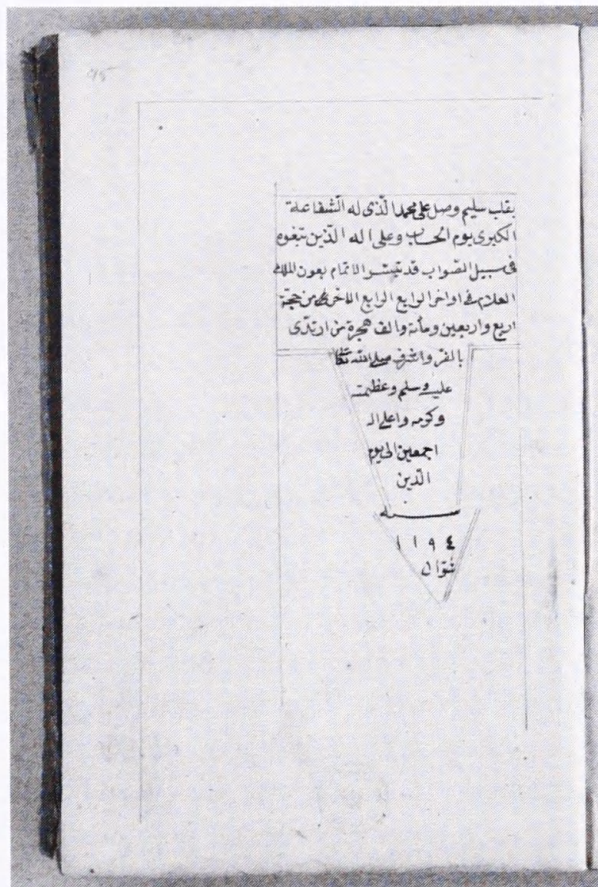 بقلب سليم وصل على محمد الذى له الشفاعة
الكبرى يوم الحساب وعلى اله الذين تبعوه
فى سبيل الصواب قد تيسر الاتمام بعون الملك
العلام فى اواخر الرابع الرابع الاخرى من حجة
اربع واربعين ومأئة والف هجرة من ارتدى
بالفر واشرف صلى الله تعالى
عليه وسلم وعظمته
وكرمه واعلى اله
اجمعين الى يوم
الدين
سنه
١١٩٤
شوال